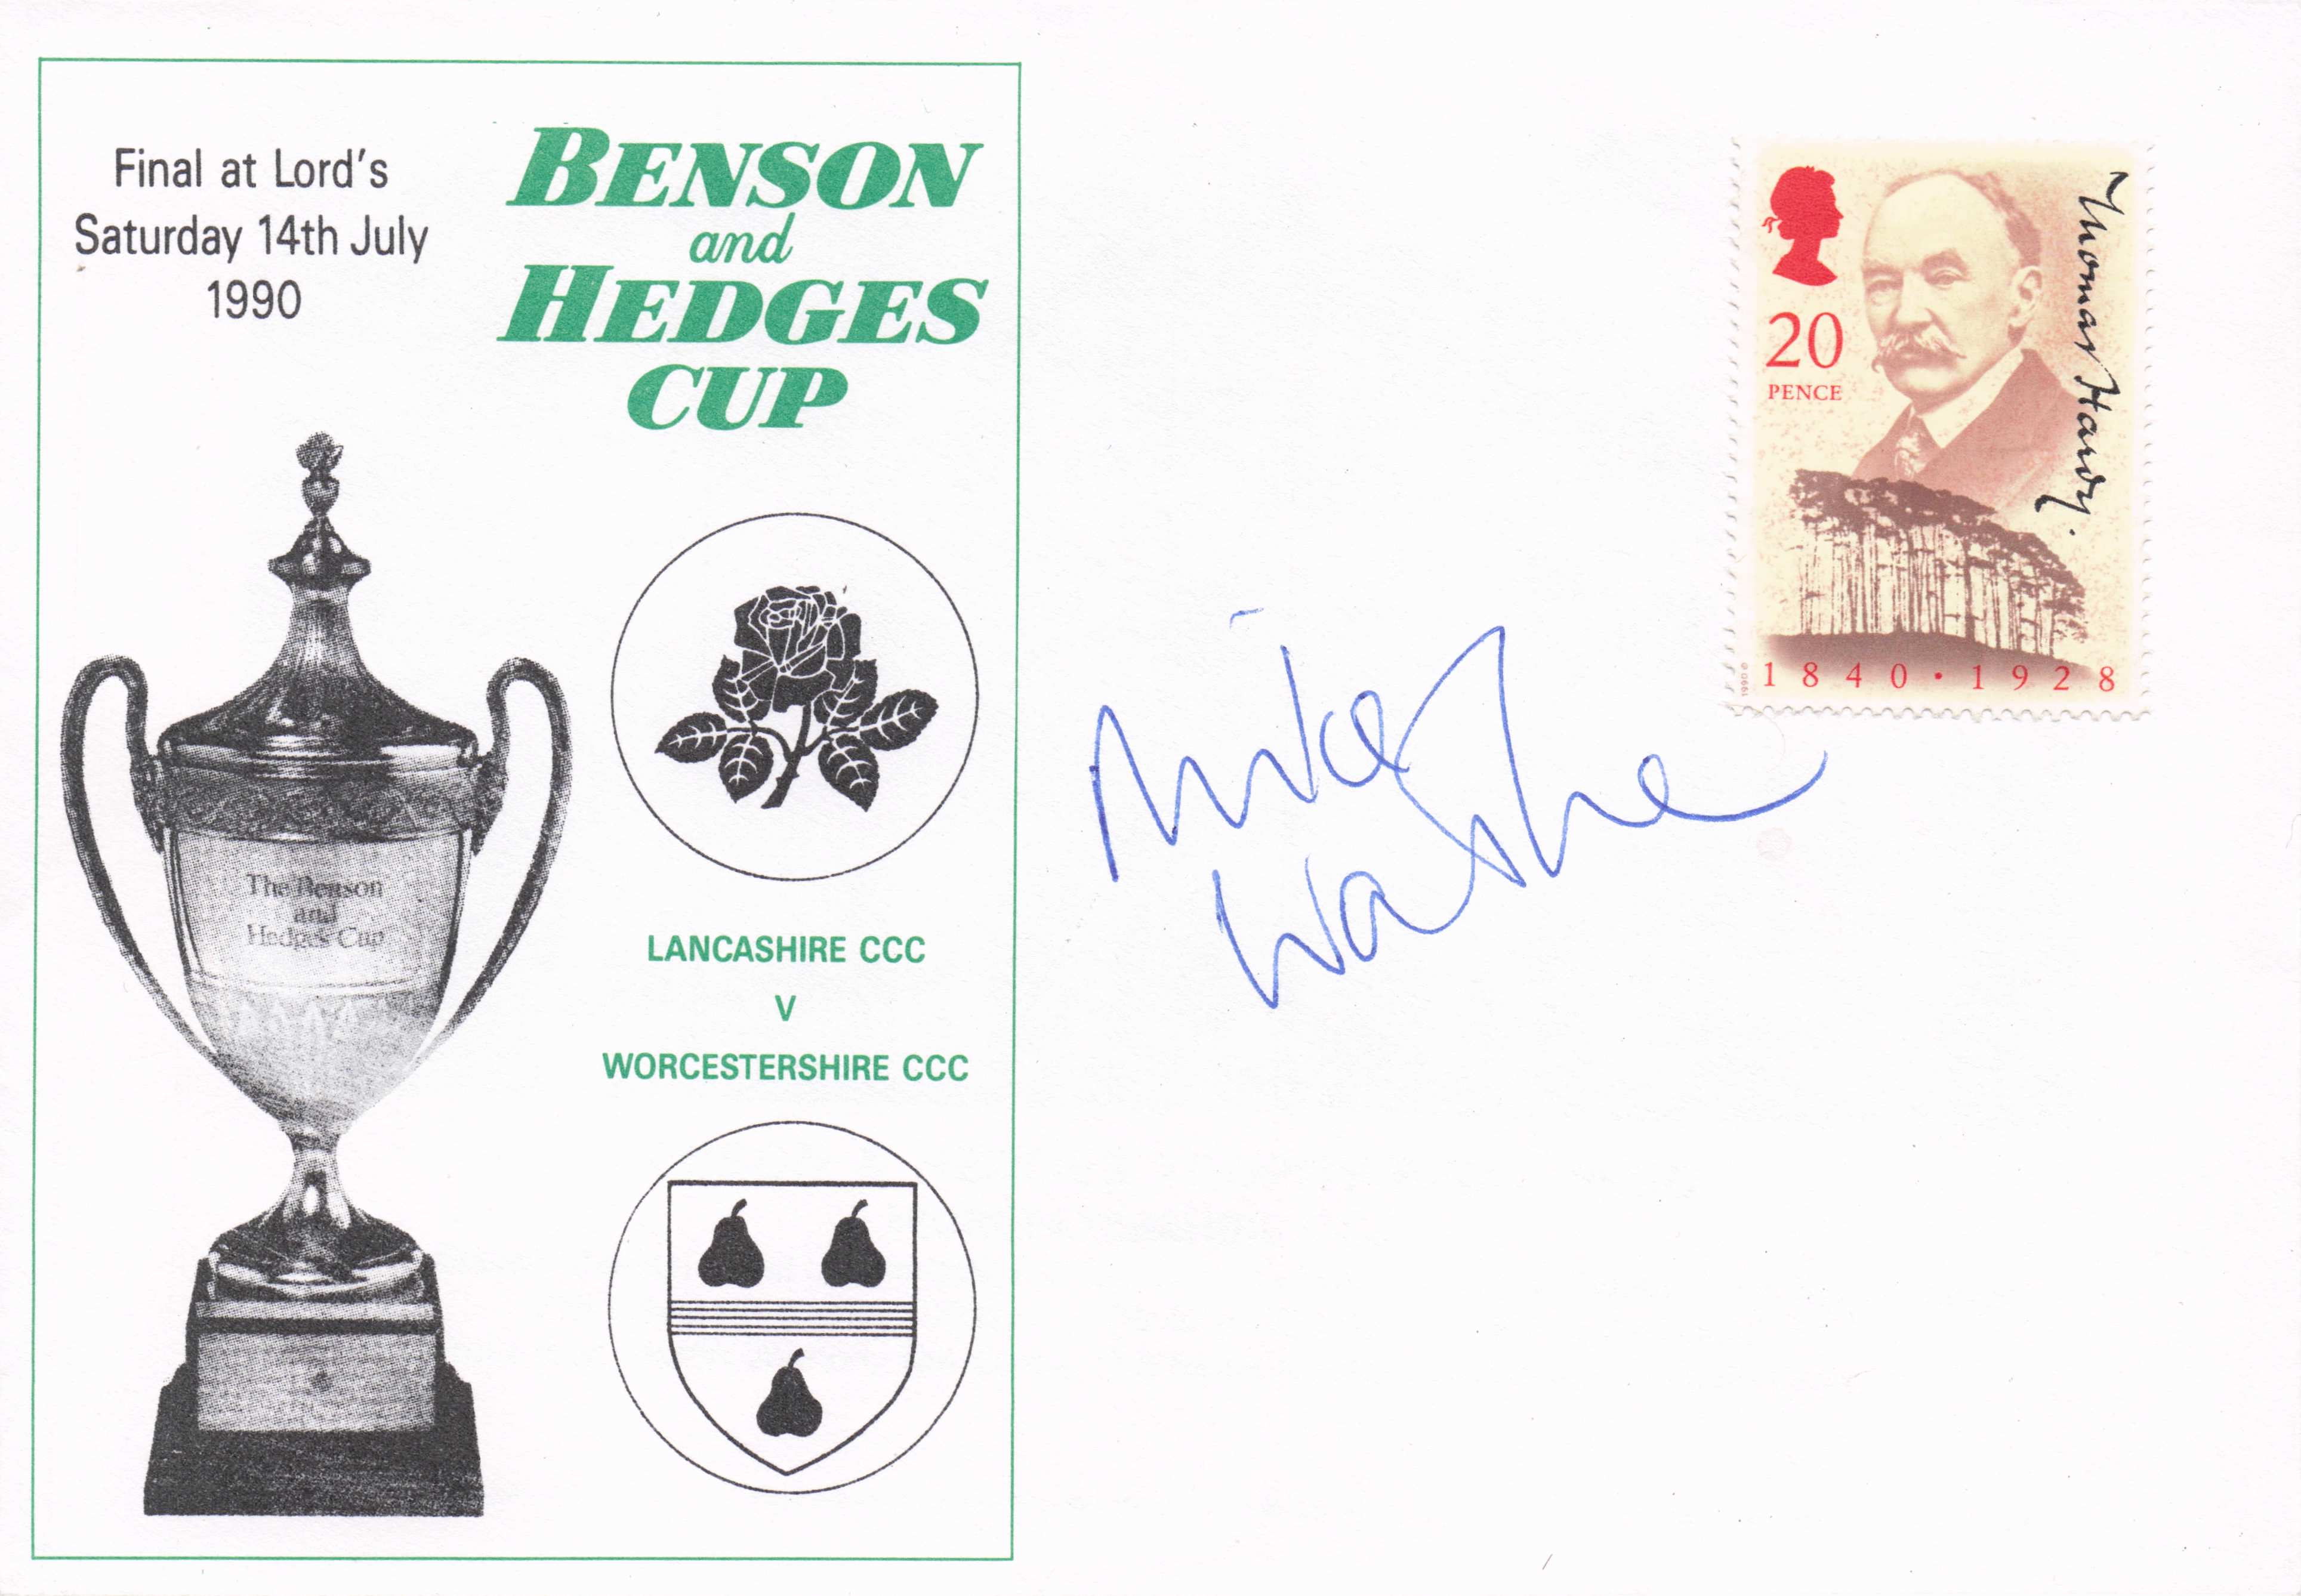 Final at Lord's
Saturday 14th July
1990
BENSON
and
HEDGES
CUP
The Benson
and
Hedges Cup
LANCASHIRE CCC
V
WORCESTERSHIRE CCC
Mike
20
PENCE
Thomas Hardy.
1840·1928
1990 ©